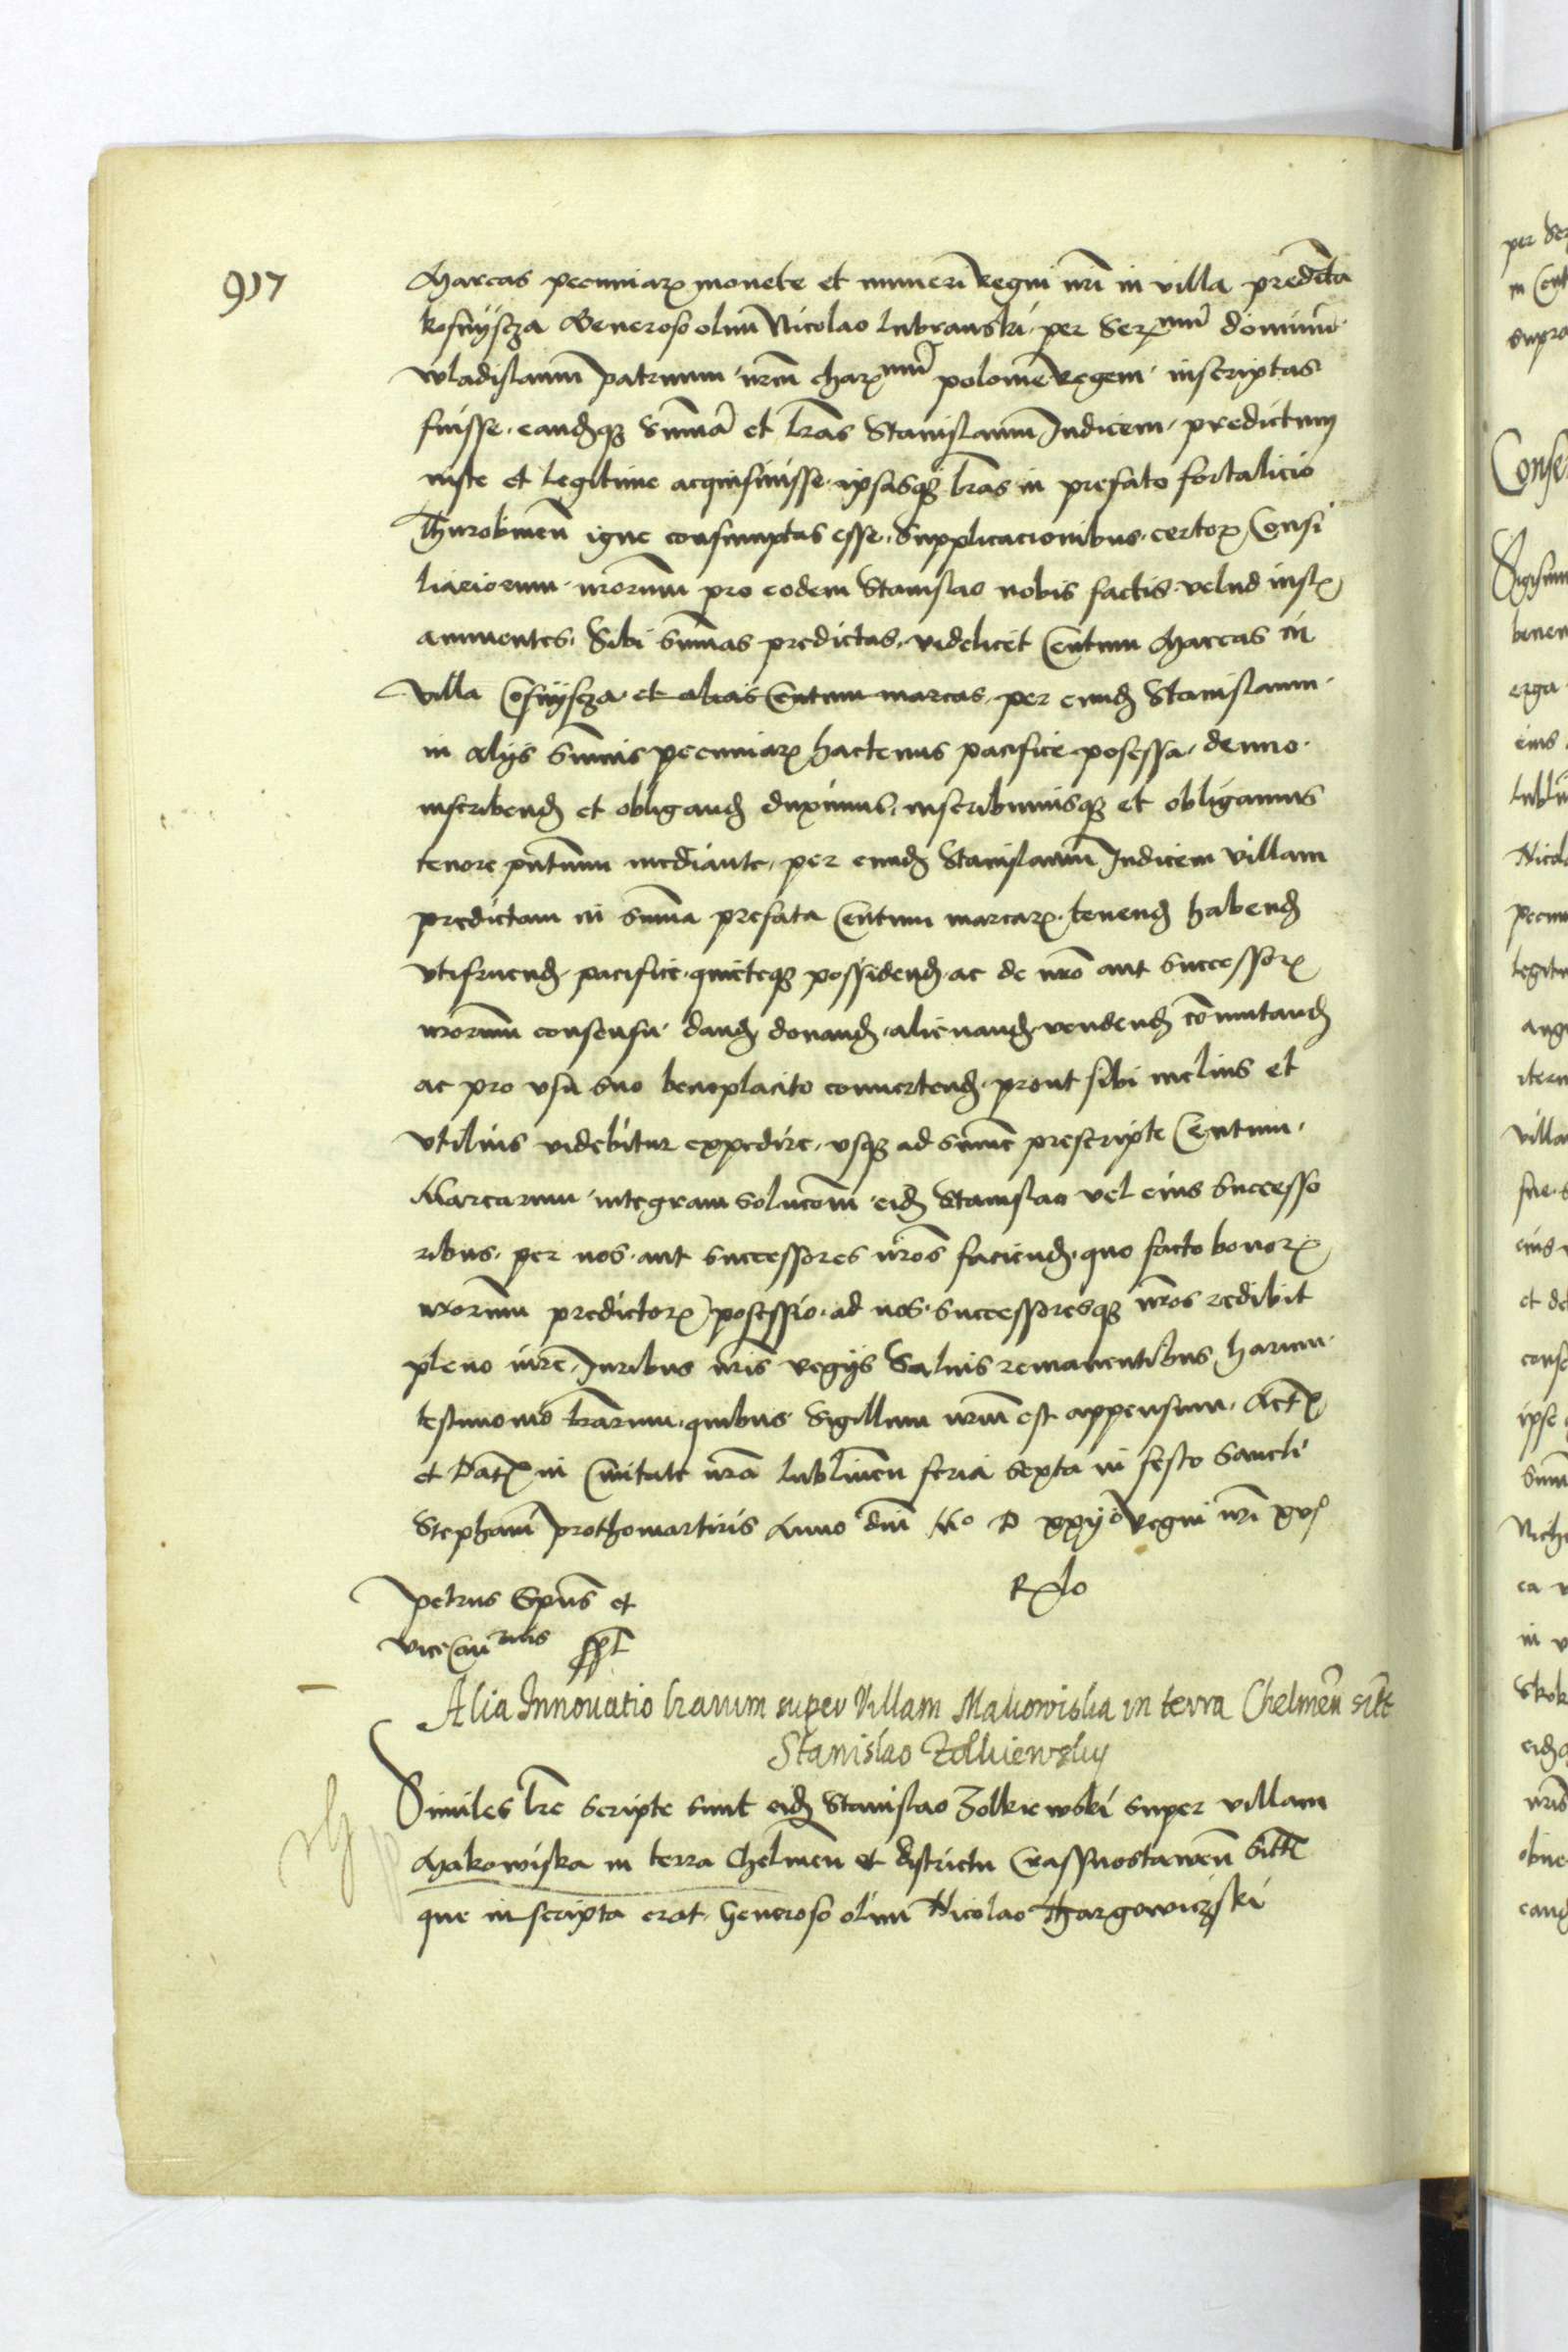 917
Marcas pecuniarꝝ monete et numeri Regni nrī in villa predicta
kosmyscza Generoso olim Nicolao lubranski per Serꝫmū dominū
wladislaum patruum nrm̄ charꝫmū polonie Regem inscriptas
fuisse eandꝫqꝫ Sum̄ā et lrās Stanislaum Judicem predictum
iuste et legitime acquisiuisse ipsasqꝫ lrās in prefato fortalicio
Thurobineñ igne consumptas esse Supplicacionibus certoꝝ Consi
liariorum nrōrum pro eodem Stanislao nobis factis velud iustꝭ
annuentes Sibi sum̄as predictas videlicet Centum Marcas in
villa Cosmyscza et alias Centum marcas per eundꝫ Stanislaum
in alijs sum̄is pecuniarꝝ hactenus pacifice possessa denuo
inscribendꝫ et obligandꝫ duximus inscribimusqꝫ et obligamus
tenore pn̄tium mediante per eundꝫ Stanislaum Judicem villam
predictam in sum̄a prefata Centum marcarꝝ tenendꝫ habendꝫ
vtifruendꝫ pacifice quieteqꝫ possidendꝫ ac de nrō aut successorꝝ
nrōrum consensu dandꝫ donandꝫ alienandꝫ vendendꝫ com̄utandꝫ
ac pro vsu suo beneplacito conuertendꝫ prout sibi melius et
vtilius videbitur expedire vsqꝫ ad sum̄e prescripte Centum
Marcarum integram soluciōm eidꝫ Stanislao vel eius successo
ribus per nos aut successores nrōs faciendꝫ quo facto bonorꝝ
nrōrum predictorꝝ possessio ad nos successoresqꝫ nrōs redibit
pleno iure Juribus nrīs regijs Saluis remanentibus harum
testimonio lrārum quibus Sigillum nrm̄ est appensum Actꝭ
et Datꝭ in Ciuitate nrā lublineñ feria sexta in festo Sancti
Stephani prothomartiris Anno dnī Mo D xxijo Regni nrī xvj
Petrus Epūs et
viceCanrius sspt
Rxlo
Alia Innouatio lrarum super Villam Makowiska in terra Chelmeñ sitē
Stanislao Zolkiewsky
Similes lrē scripte sunt eidꝫ Stanislao Zolkiewski super villam
Makowiska in terra Chelmeñ et districtu Crassnostaweñ sittꝭ
que inscripta erat Generoso olim Nicolao Thargowiczski